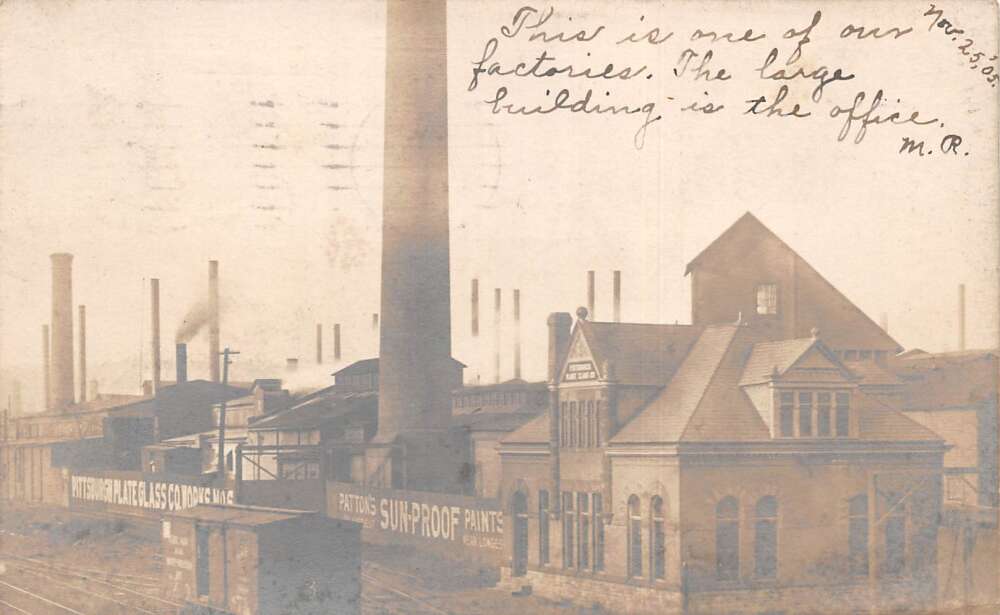 This is one of our
factories. The large
building is the office.
M. R.
Nov. 25, '05.
PITTSBURGH
PLATE GLASS CO.
PITTSBURGH PLATE GLASS CO. WORKS NO.5
PATTON'S SUN-PROOF PAINTS
WEAR LONGEST